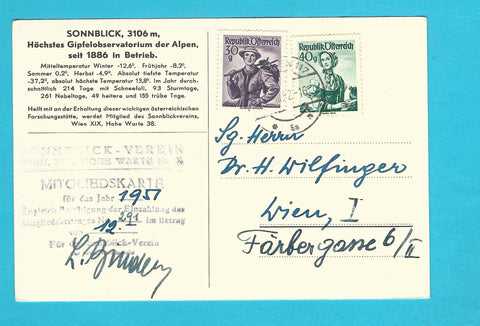 SONNBLICK, 3106 m,
Höchstes Gipfelobservatorium der Alpen,
seit 1886 in Betrieb.
Mitteltemperatur Winter -12,6⁰, Frühjahr -8,2⁰,
Sommer 0,2⁰, Herbst -4,9⁰. Absolut tiefste Temperatur
-37,2⁰, absolut höchste Temperatur 13,8⁰. Im Jahr durch-
schnittlich 214 Tage mit Schneefall, 93 Sturmtage,
261 Nebeltage, 49 heitere und 155 trübe Tage.
Helft mit an der Erhaltung dieser wichtigen österreichischen
Forschungsstätte, werdet Mitglied des Sonnblickvereins,
Wien XIX, Hohe Warte 38.
SONNBLICK-VEREIN
WIEN, HOHE WARTE
MITGLIEDSKARTE
für das Jahr 1951
Zugleich Bestätigung der Einzahlung des
Mitgliedbeitrages im Betrag
von 12.
Für den Sonnblick-Verein
Republik Österreich
30
g
Republik Österreich
40g
Sg. Herrn
Dr. H. Wilfinger
Wien, I
Färbergasse 6/II